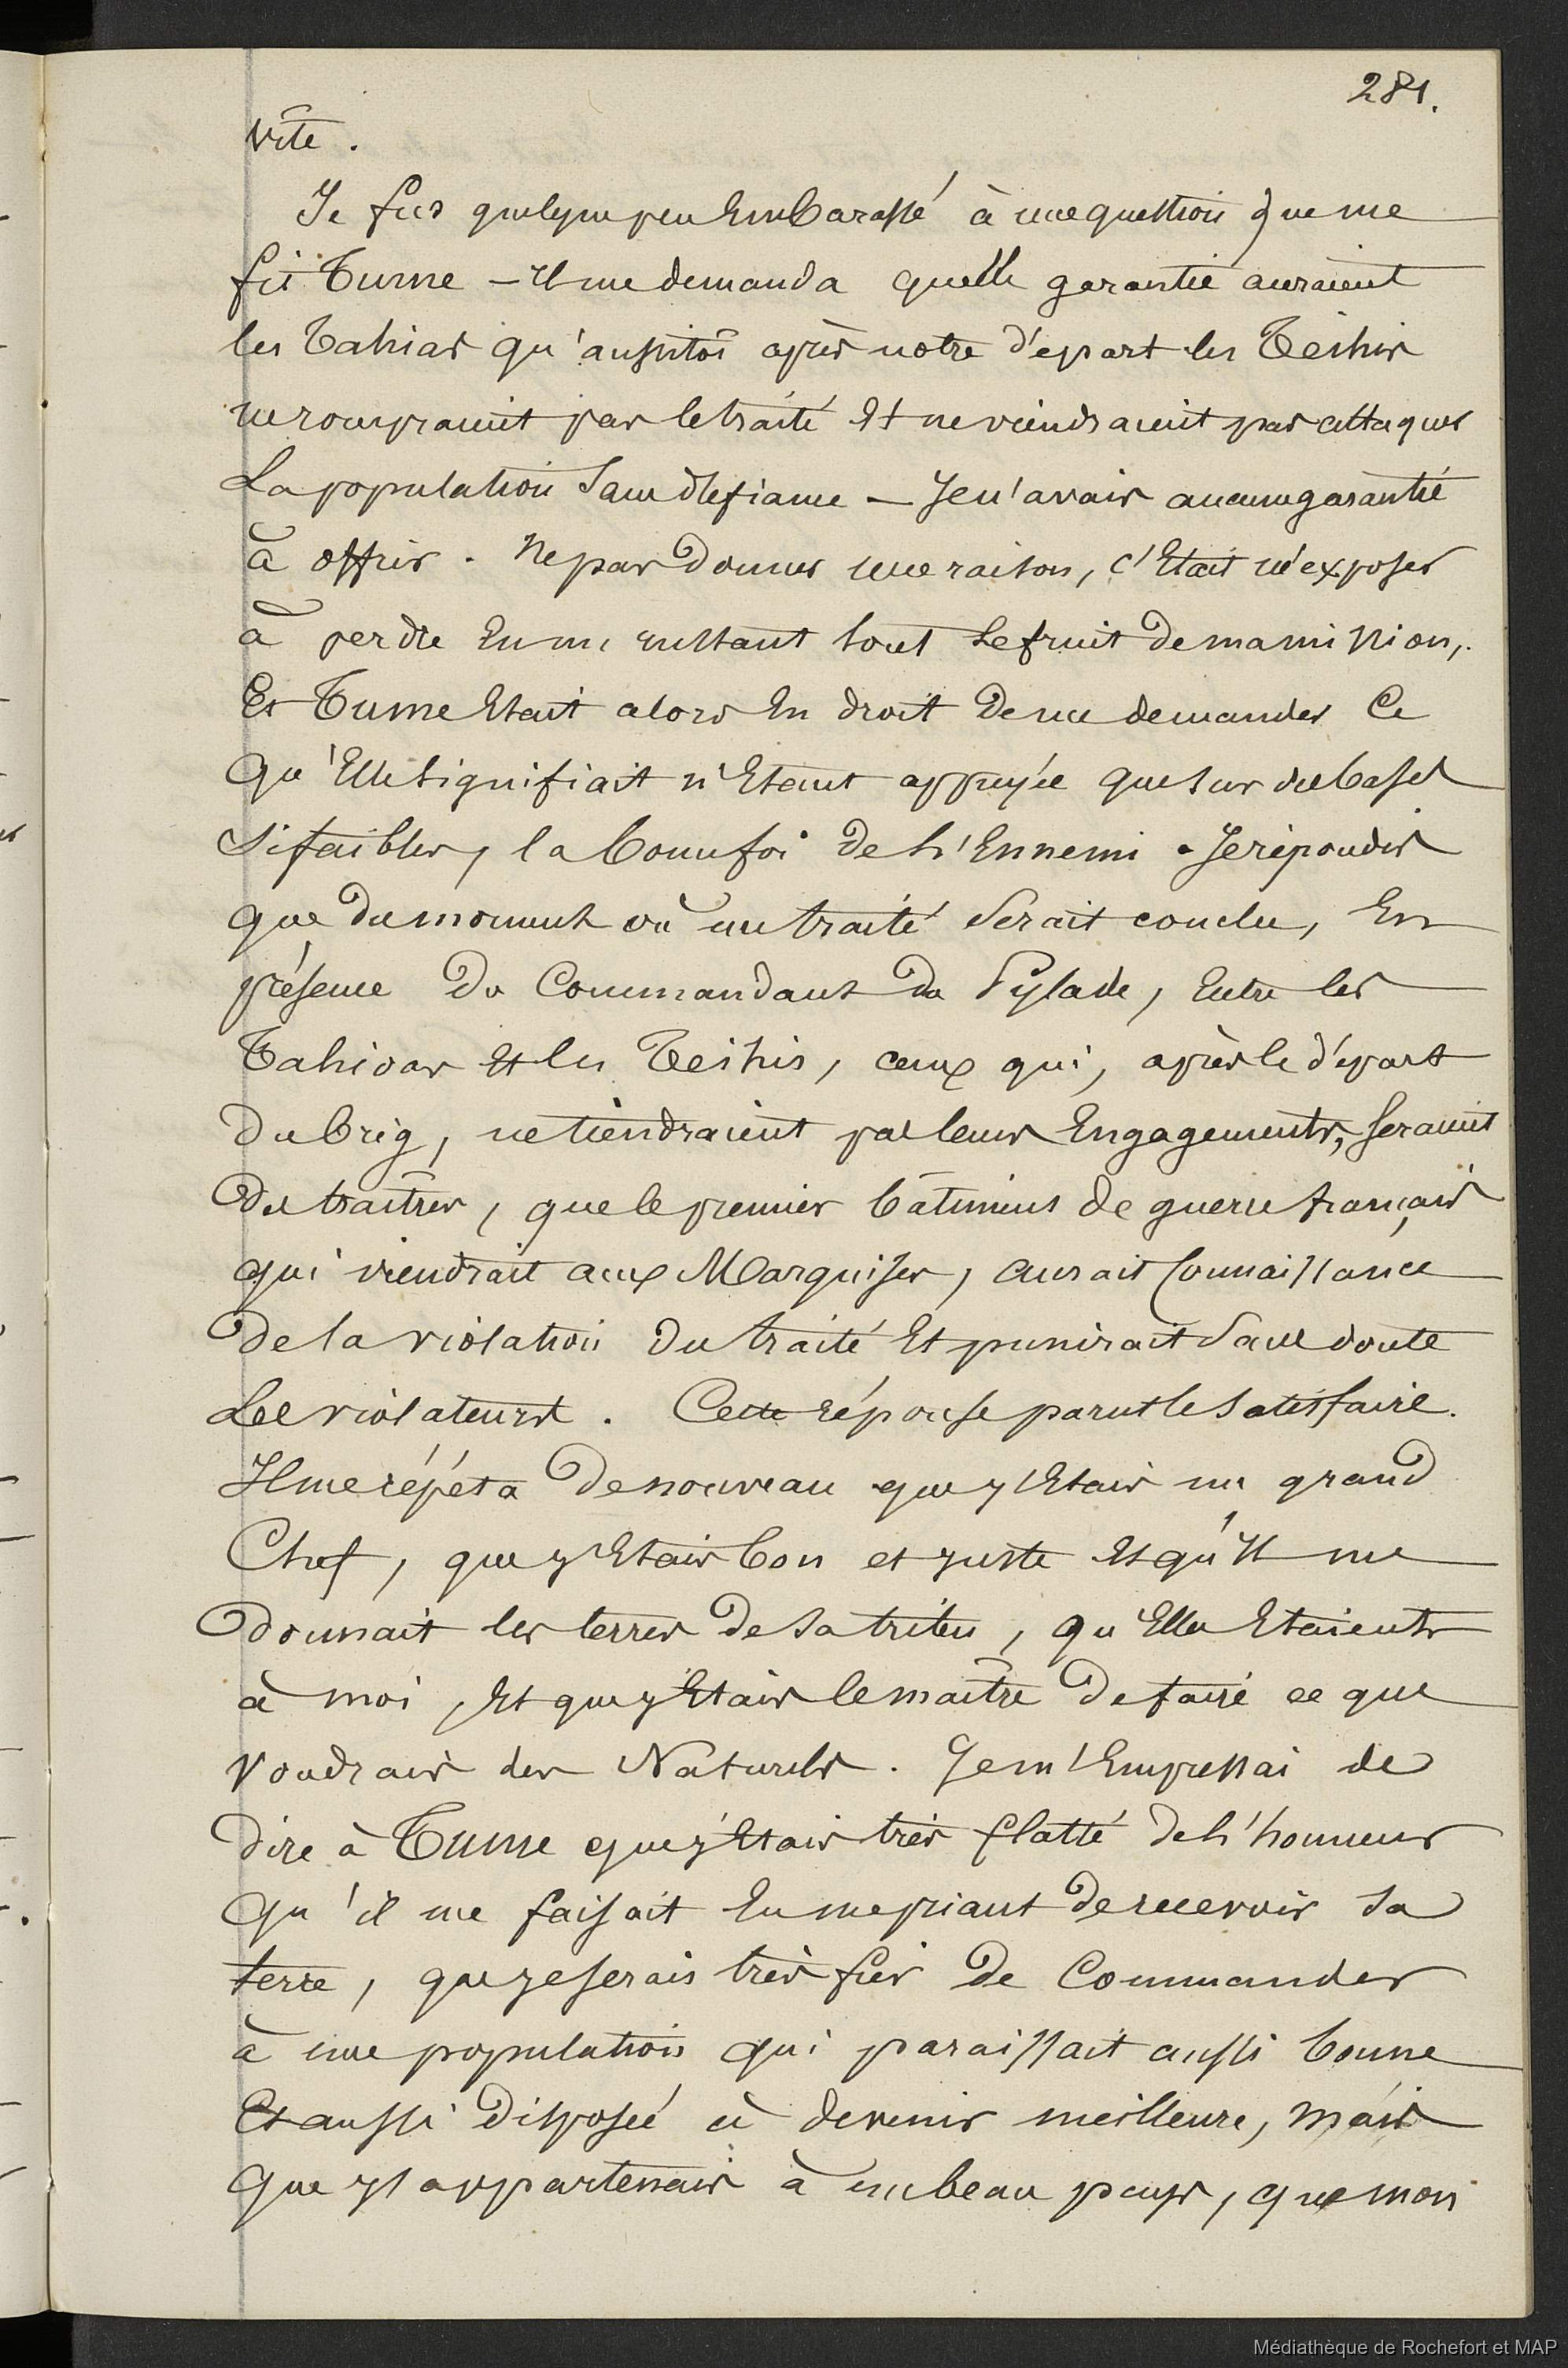 281.
vîte.
Je fus quelque peu Embarassé à une question que me
fit Tume - Il me demanda quelle garantie auraient
les Tahias qu'aussitôt après notre départ les Teihis
ne rompraient pas le traité Et ne viendraient pas attaquer
La population sans défiance — Je n'avais aucune garantie
à offrir. Ne pas donner une raison, c'Etait m'exposer
à perdre En un instant tout Le fruit de ma mission,
Et Tume Etait alors En droit de me demander Ce
qu'Elle signifiait n'Etant appuyée que sur des bases
si faibles, la bonne foi de l'Ennemi. Je répondis
que du moment où un traité serait conclu, En
présence du Commandant du Pylade, Entre les
Tahioas Et les Teihis, ceux qui, après le départ
du brig, ne tiendraient pas leurs Engagements, seraient
des traîtres, que le premier bâtiment de guerre français
qui viendrait aux Marquises, aurait Connaissance
de la violation du traité Et punirait sans doute
Les violateurs. Cette réponse parut le satisfaire.
Il me répéta de nouveau que j'Etais un grand
Chef, que j'Etais bon et juste Et qu'Il me
donnait les terres de sa tribu, qu'Elles Etaient
à moi, Et que j'Etais le maître de faire ce que
voudrais des Naturels. Je m'Empressai de
dire à Tume que j'Etais très flatté de l'honneur
qu'il me faisait En me priant de recevoir sa
terre, que je serais très fier de Commander
à une population qui paraissait aussi bonne
Et aussi disposée à devenir meilleure, mais
que j'appartenais à un beau pays, que mon
Médiathèque de Rochefort et MAP